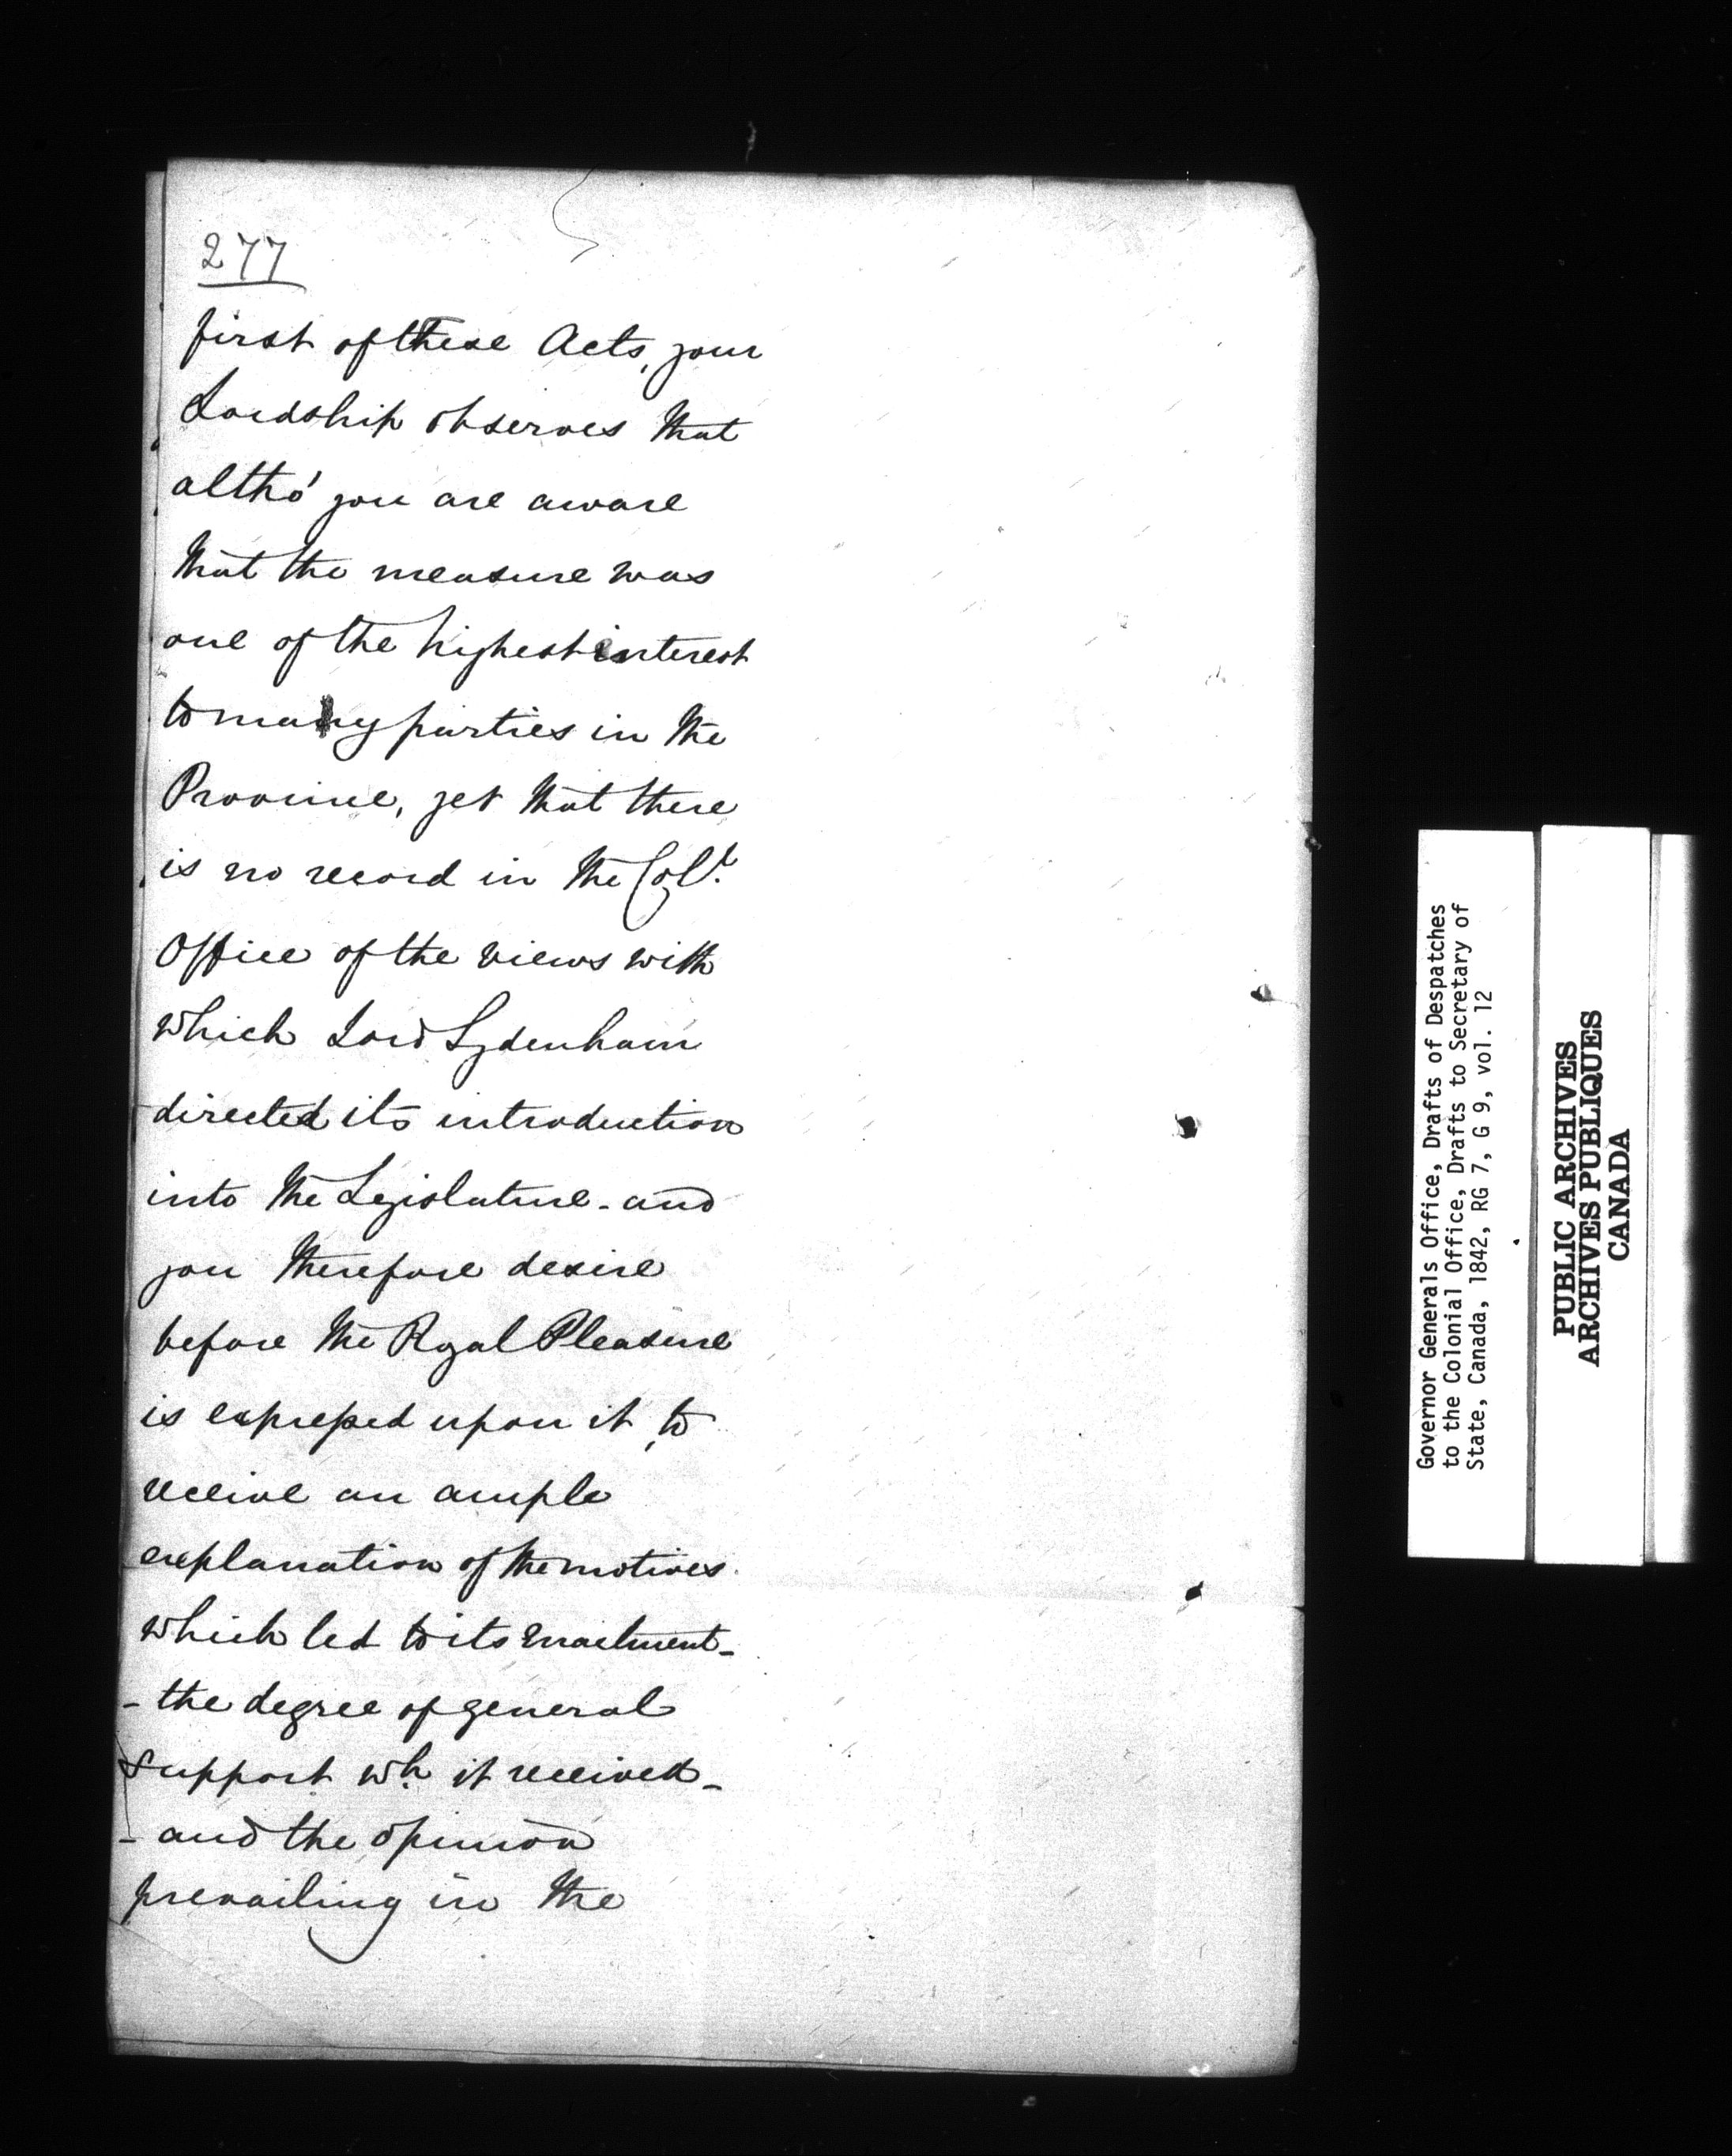 277
first of these Acts, your
Lordship observes that
altho' you are aware
that the measure was
one of the highest interest
to many parties in the
Province, yet that there
is no record in the Col.l
Office of the views with
which Lord Sydenham
directed its introduction
into the Legislature - and
you therefore desire
before the Royal Pleasure
is expressed upon it, to
receive an ample
explanation of the motives
which led to its enactment -
- the degree of general
support wh. it received -
- and the opinion
prevailing in the
Governor Generals Office, Drafts of Despatches
to the Colonial Office, Drafts to Secretary of
State, Canada, 1842, RG 7, G 9, vol. 12
PUBLIC ARCHIVES
ARCHIVES PUBLIQUES
CANADA